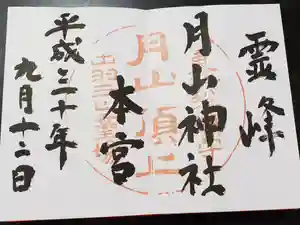 霊峰
月山神社
本宮
平成三十年
九月十二日
月山頂上